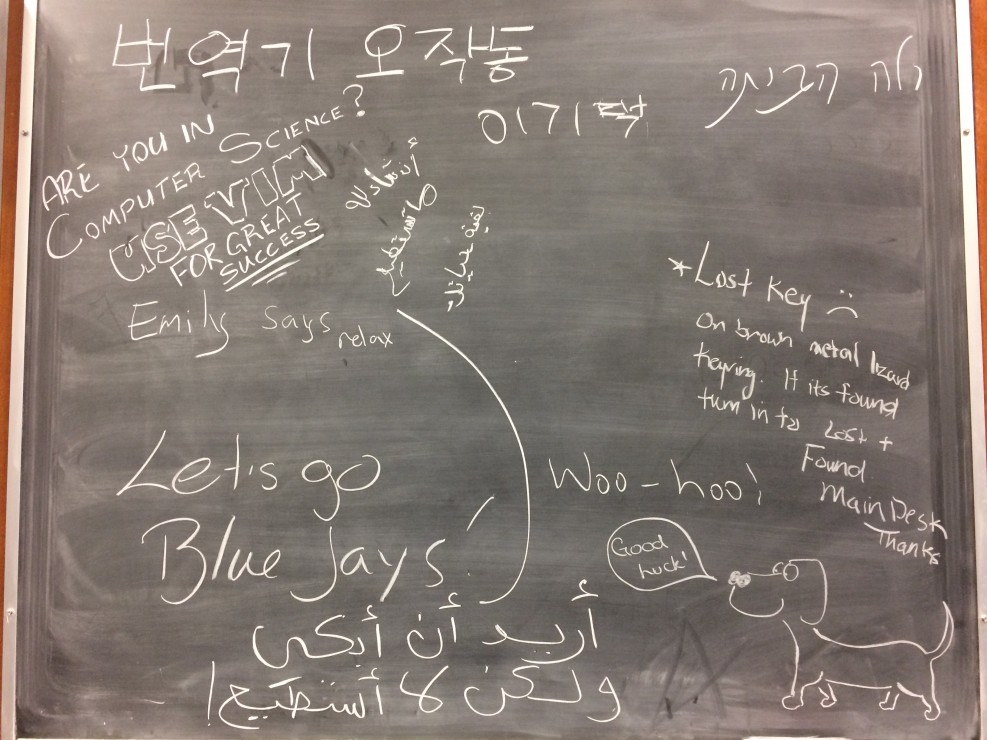 번역기 오작동
הלאה הביתה
ARE YOU IN
COMPUTER SCIENCE?
USE VIM
FOR GREAT
SUCCESS
Emily says relax
* Lost Key :(
On brown metal lizard
Keyring. If its found
turn in to Lost +
Found
Main Desk
Thanks
Let's go
Blue Jays!
Woo-hoo!
Good
luck!
أريد أن أبكي
ولكن لا أستطيع!